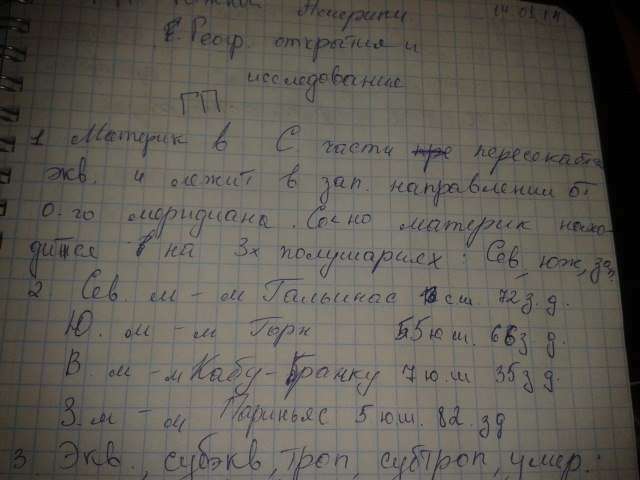 ГП Южной Америки 14.01.14
Геогр. открытия и
исследование
ГП.
1 Материк в С части пересекает
экв. и лежит в зап. направлении от
0-го меридиана. материк нахо-
дится на 3х полушариях: Сев, юж, зап.
2 Сев. м - м Гальинас сш. 72 з. д.
Ю. м - м Горн 55 ю.ш. 66 з д.
В. м - м Кабу-Бранку 7 ю.ш 35 з д.
З. м - м Париньяс 5 юш. 82. зд
3. Экв., субэкв, троп, субтроп, умер.